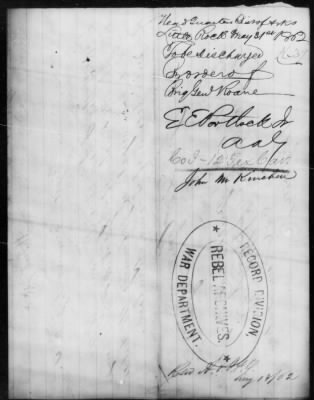 Head Quarters Dis of Arks
Little Rock May 31st 1862
To be discharged
By order of
Brig Genl Roane
E E Portlock Jr
A A G
Co I - 12 Tex Cav
John Mc
RECORD DIVISION,
REBEL ARCHIVES.
WAR DEPARTMENT.